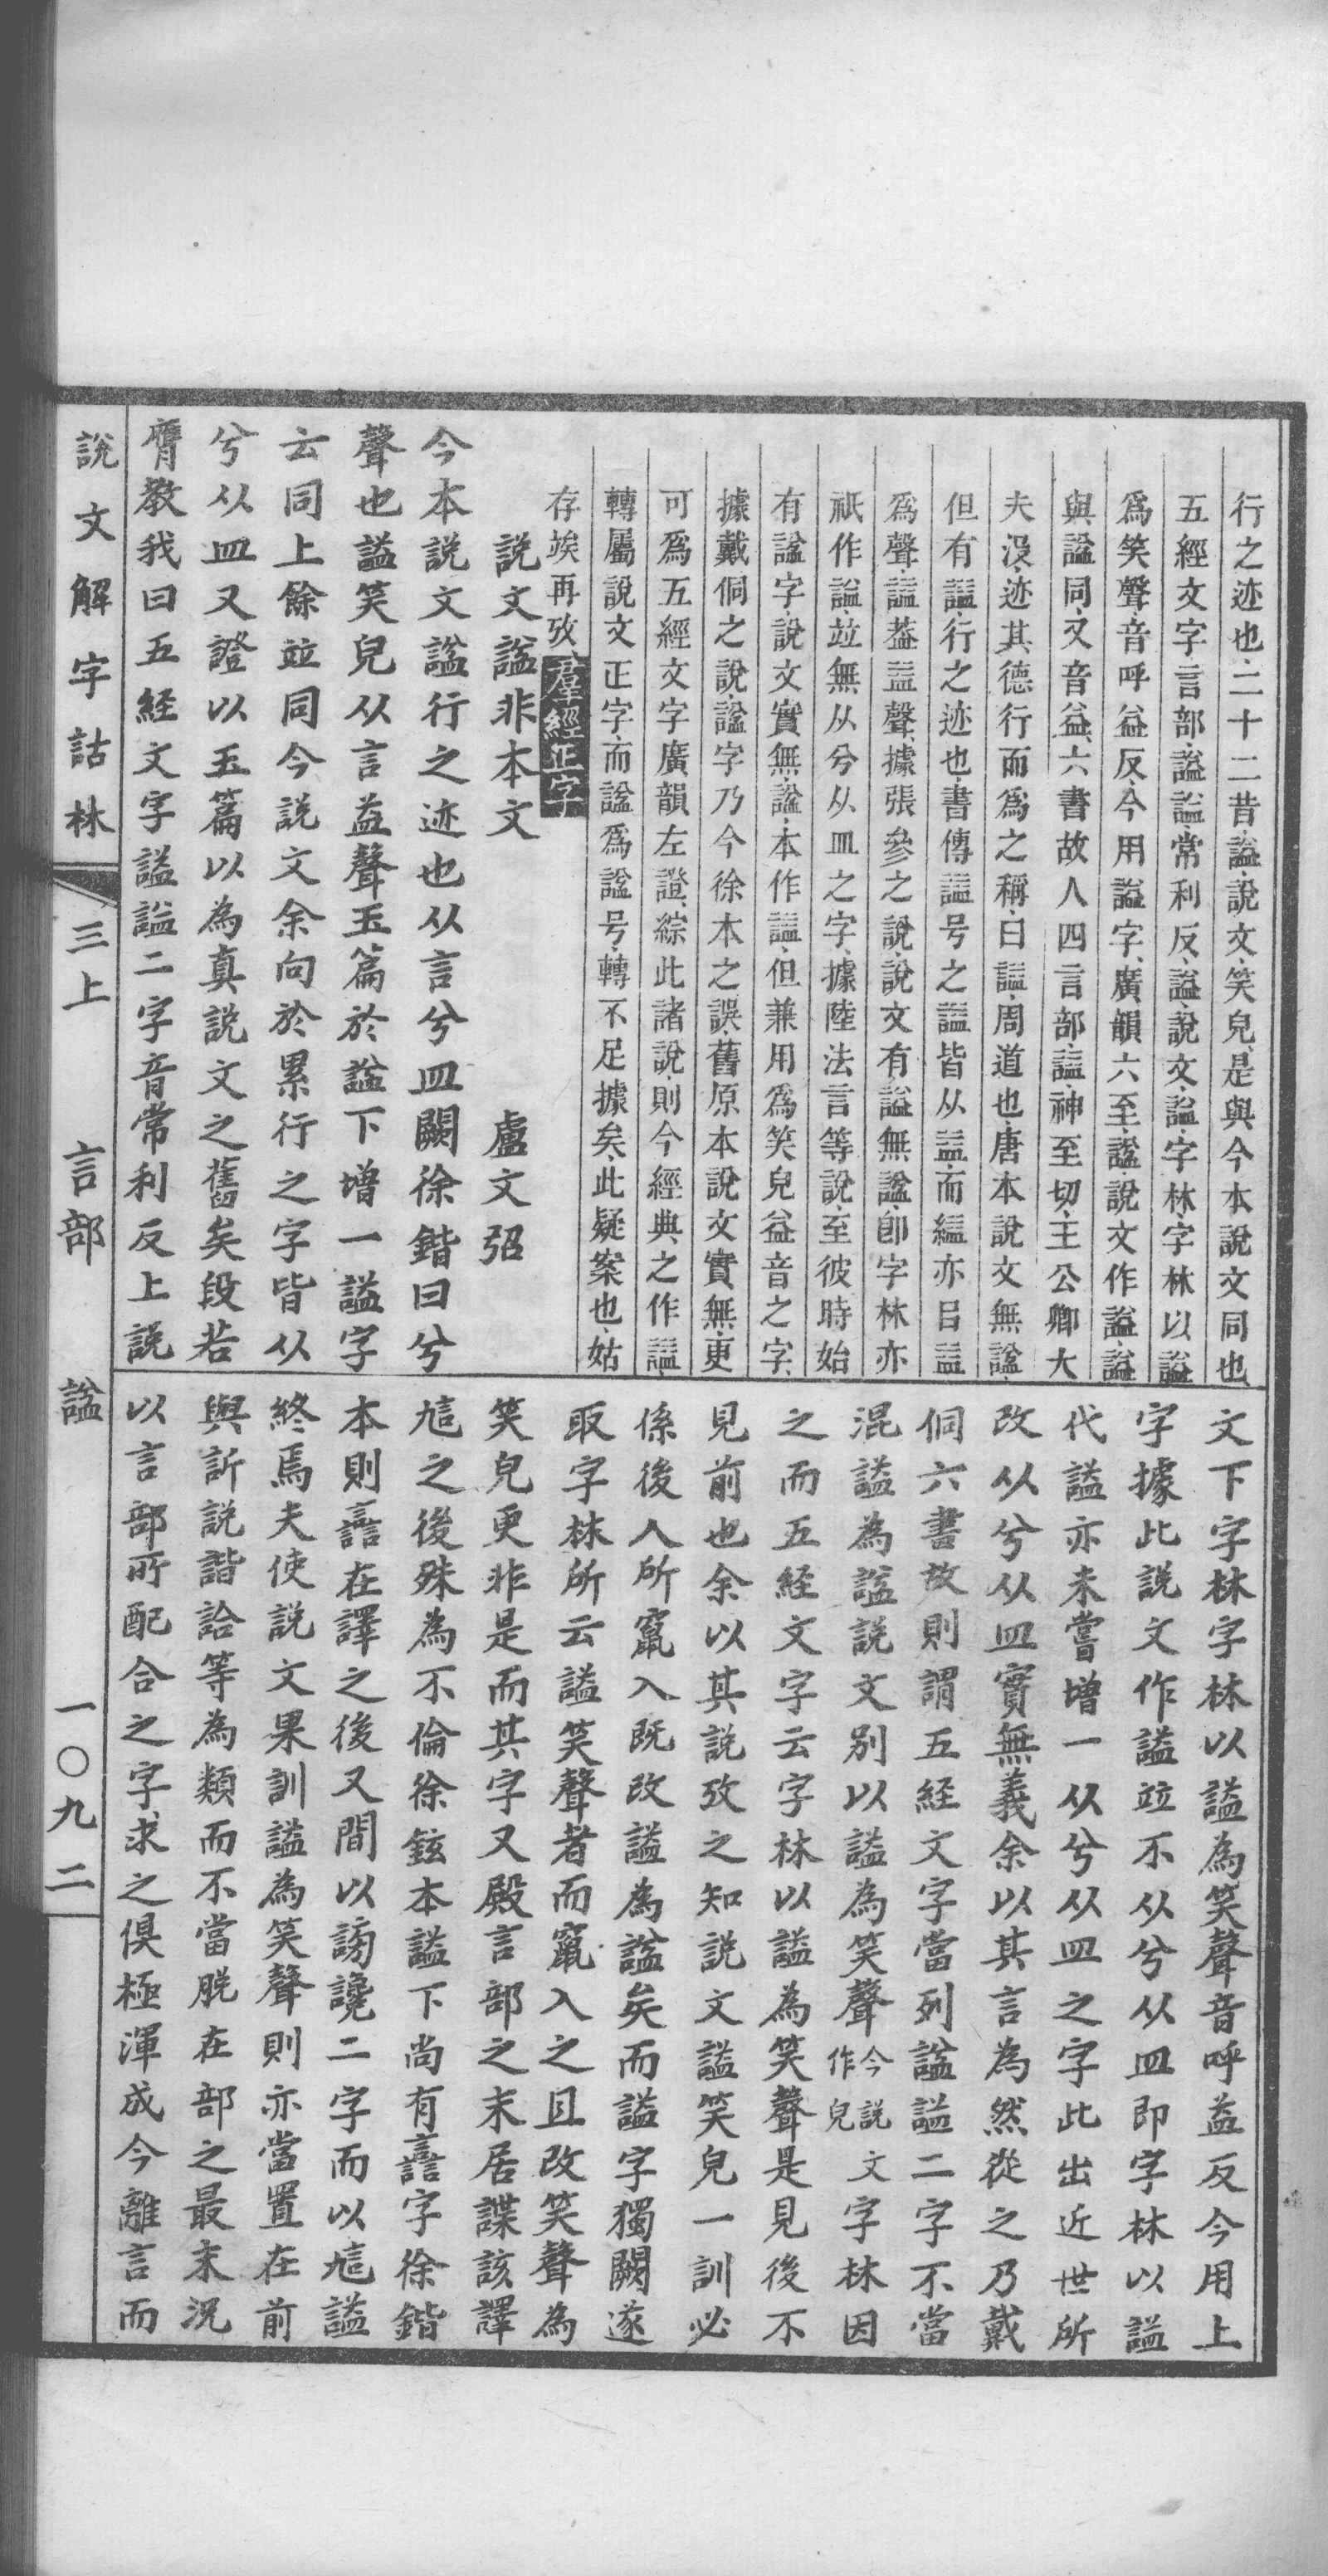 行之迹也、二十二昔謚、說文、笑皃、是與今本說文同也、
五經文字言部、謚諡、常利反、謚、說文、諡、字林、字林以謚
爲笑聲、音呼益反、今用諡字、廣韻六至、諡、說文作謚、諡
與諡同、又音益、六書故人四言部、諡、神至切、王公卿大
夫沒、迹其德行而爲之稱、曰諡、周道也、唐本說文無諡、
但有諡、行之迹也、書傳諡号之諡皆从益、而縊亦㠯益
爲聲、諡葢益聲、據張參之說、說文有謚無諡、卽字林亦
祇作諡、竝無从兮从皿之字、據陸法言等說、至彼時始
有諡字、說文實無諡、本作諡、但兼用爲笑皃益音之字、
據戴侗之說、諡字乃今徐本之誤、舊原本說文實無、更
可爲五經文字廣韻左證、綜此諸說、則今經典之作諡、
轉屬說文正字、而諡爲諡号、轉不足據矣、此疑案也、姑
存竢再攷、羣經正字
說文諡非本文　盧文弨
今本説文諡行之迹也从言兮皿闕徐鍇曰兮
聲也謚笑皃从言益聲玉篇於諡下增一謚字
云同上餘竝同今説文余向於累行之字皆从
兮从皿又證以玉篇以為真説文之舊矣段若
膺教我曰五經文字謚諡二字音常利反上説
文下字林字林以謚為笑聲音呼益反今用上
字據此説文作謚竝不从兮从皿即字林以謚
代謚亦未嘗增一从兮从皿之字此出近世所
改从兮从皿實無義余以其言為然從之乃戴
侗六書故則謂五經文字當列諡謚二字不當
混謚為諡説文別以謚為笑聲今説文作皃字林因
之而五經文字云字林以謚為笑聲是見後不
見前也余以其説攷之知説文謚笑皃一訓必
係後人所竄入既改謚為諡矣而謚字獨闕遂
取字林所云謚笑聲者而竄入之且改笑聲為
笑皃更非是而其字又殿言部之末居諜該譯
訄之後殊為不倫徐鉉本謚下尚有譶字徐鍇
本則譶在譯之後又間以謗讒二字而以訄謚
終焉夫使説文果訓謚為笑聲則亦當置在前
與訢説諧詥等為類而不當脱在部之最末況
以言部所配合之字求之俱極渾成今離言而
說文解字詁林　三上　言部　諡　一〇九二